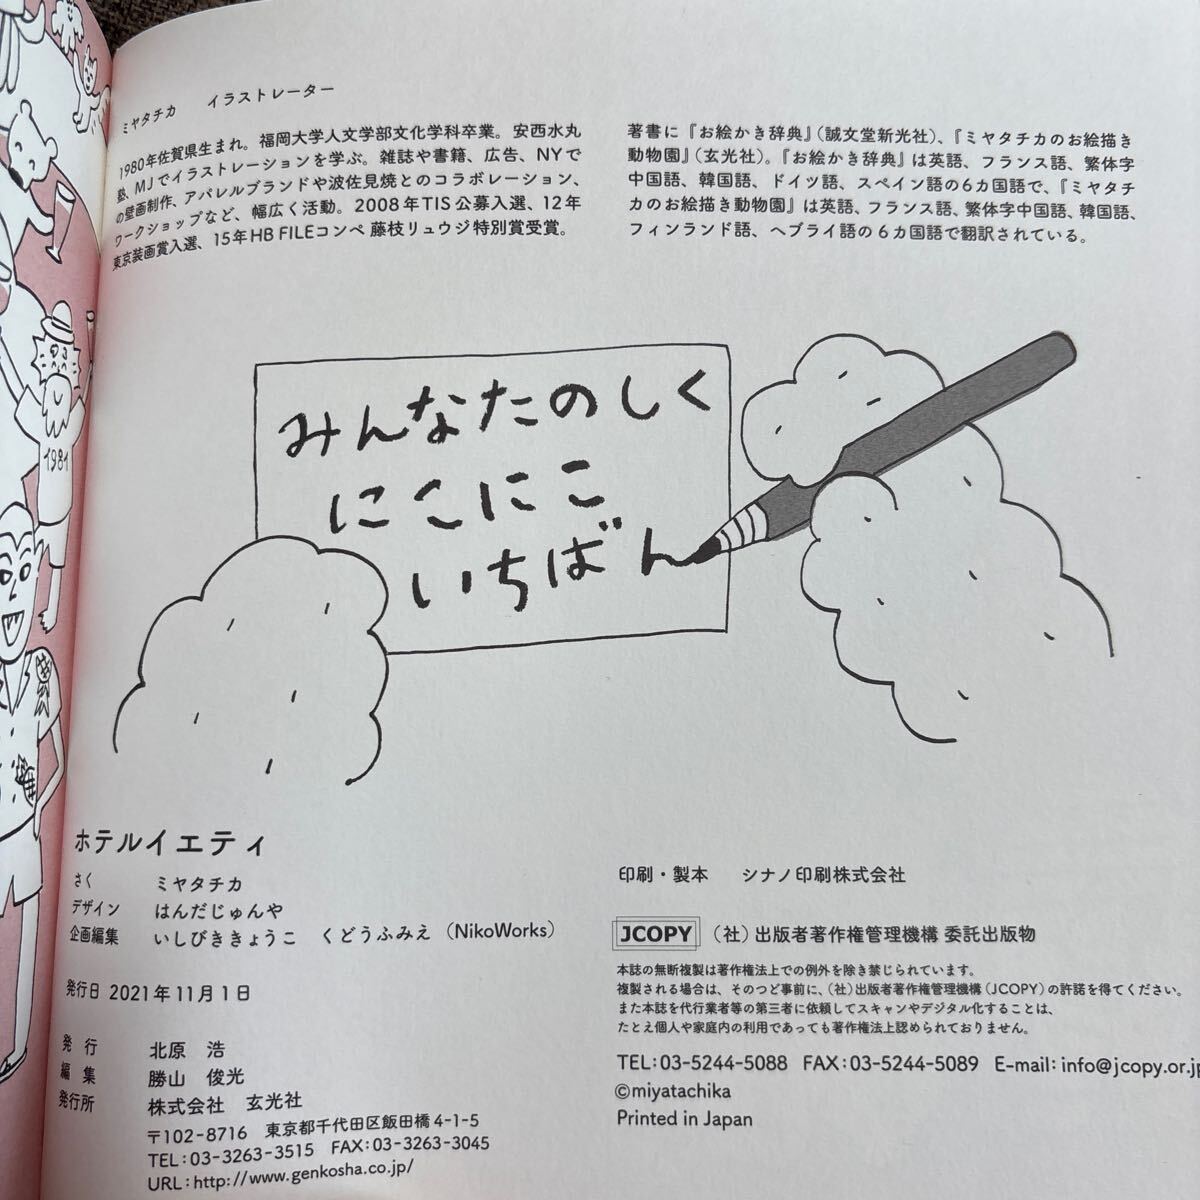 ミヤタチカ　イラストレーター
1980年佐賀県生まれ。福岡大学人文学部文化学科卒業。安西水丸
塾、MJでイラストレーションを学ぶ。雑誌や書籍、広告、NYで
の壁画制作、アパレルブランドや波佐見焼とのコラボレーション、
ワークショップなど、幅広く活動。2008年TIS公募入選、12年
東京装画賞入選、15年HB FILEコンペ 藤枝リュウジ特別賞受賞。
著書に『お絵かき辞典』（誠文堂新光社）、『ミヤタチカのお絵描き
動物園』（玄光社）。『お絵かき辞典』は英語、フランス語、繁体字
中国語、韓国語、ドイツ語、スペイン語の6カ国語で、『ミヤタチ
カのお絵描き動物園』は英語、フランス語、繁体字中国語、韓国語、
フィンランド語、ヘブライ語の6カ国語で翻訳されている。
みんなたのしく
にこにこ
いちばん
1981
ホテルイエティ
さく　ミヤタチカ
デザイン　はんだじゅんや
企画編集　いしびききょうこ　くどうふみえ（NikoWorks）
発行日　2021年11月1日
発行　北原　浩
編集　勝山　俊光
発行所　株式会社　玄光社
〒102-8716　東京都千代田区飯田橋4-1-5
TEL:03-3263-3515　FAX:03-3263-3045
URL:http://www.genkosha.co.jp/
印刷・製本　シナノ印刷株式会社
JCOPY （社）出版者著作権管理機構 委託出版物
本誌の無断複製は著作権法上での例外を除き禁じられています。
複製される場合は、そのつど事前に、（社）出版者著作権管理機構（JCOPY）の許諾を得てください。
また本誌を代行業者等の第三者に依頼してスキャンやデジタル化することは、
たとえ個人や家庭内の利用であっても著作権法上認められておりません。
TEL:03-5244-5088　FAX:03-5244-5089　E-mail: info@jcopy.or.jp
©miyatachika
Printed in Japan